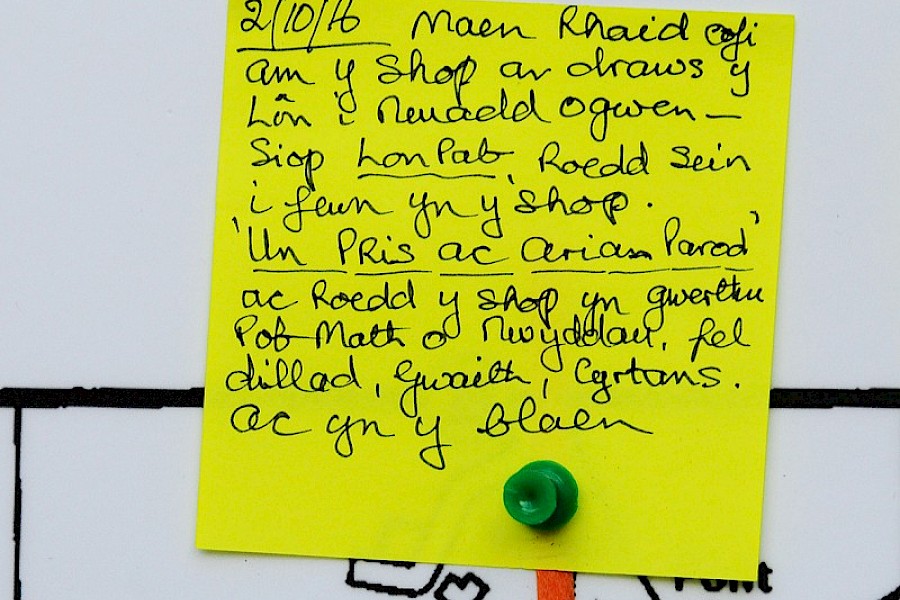 2/10/16 Maen Rhaid cofi
am y Shop ar draws y
Lôn i Neuadd Ogwen —
Siop Lon Pab, Roedd Sein
i fewn yn y shop.
'Un PRis ac arian Parod'
ac Roedd y shop yn gwerthu
Pob Math o Nwyddau, fel
dillad, Gwaith, Cyrtans.
ac yn y blaen
Pont